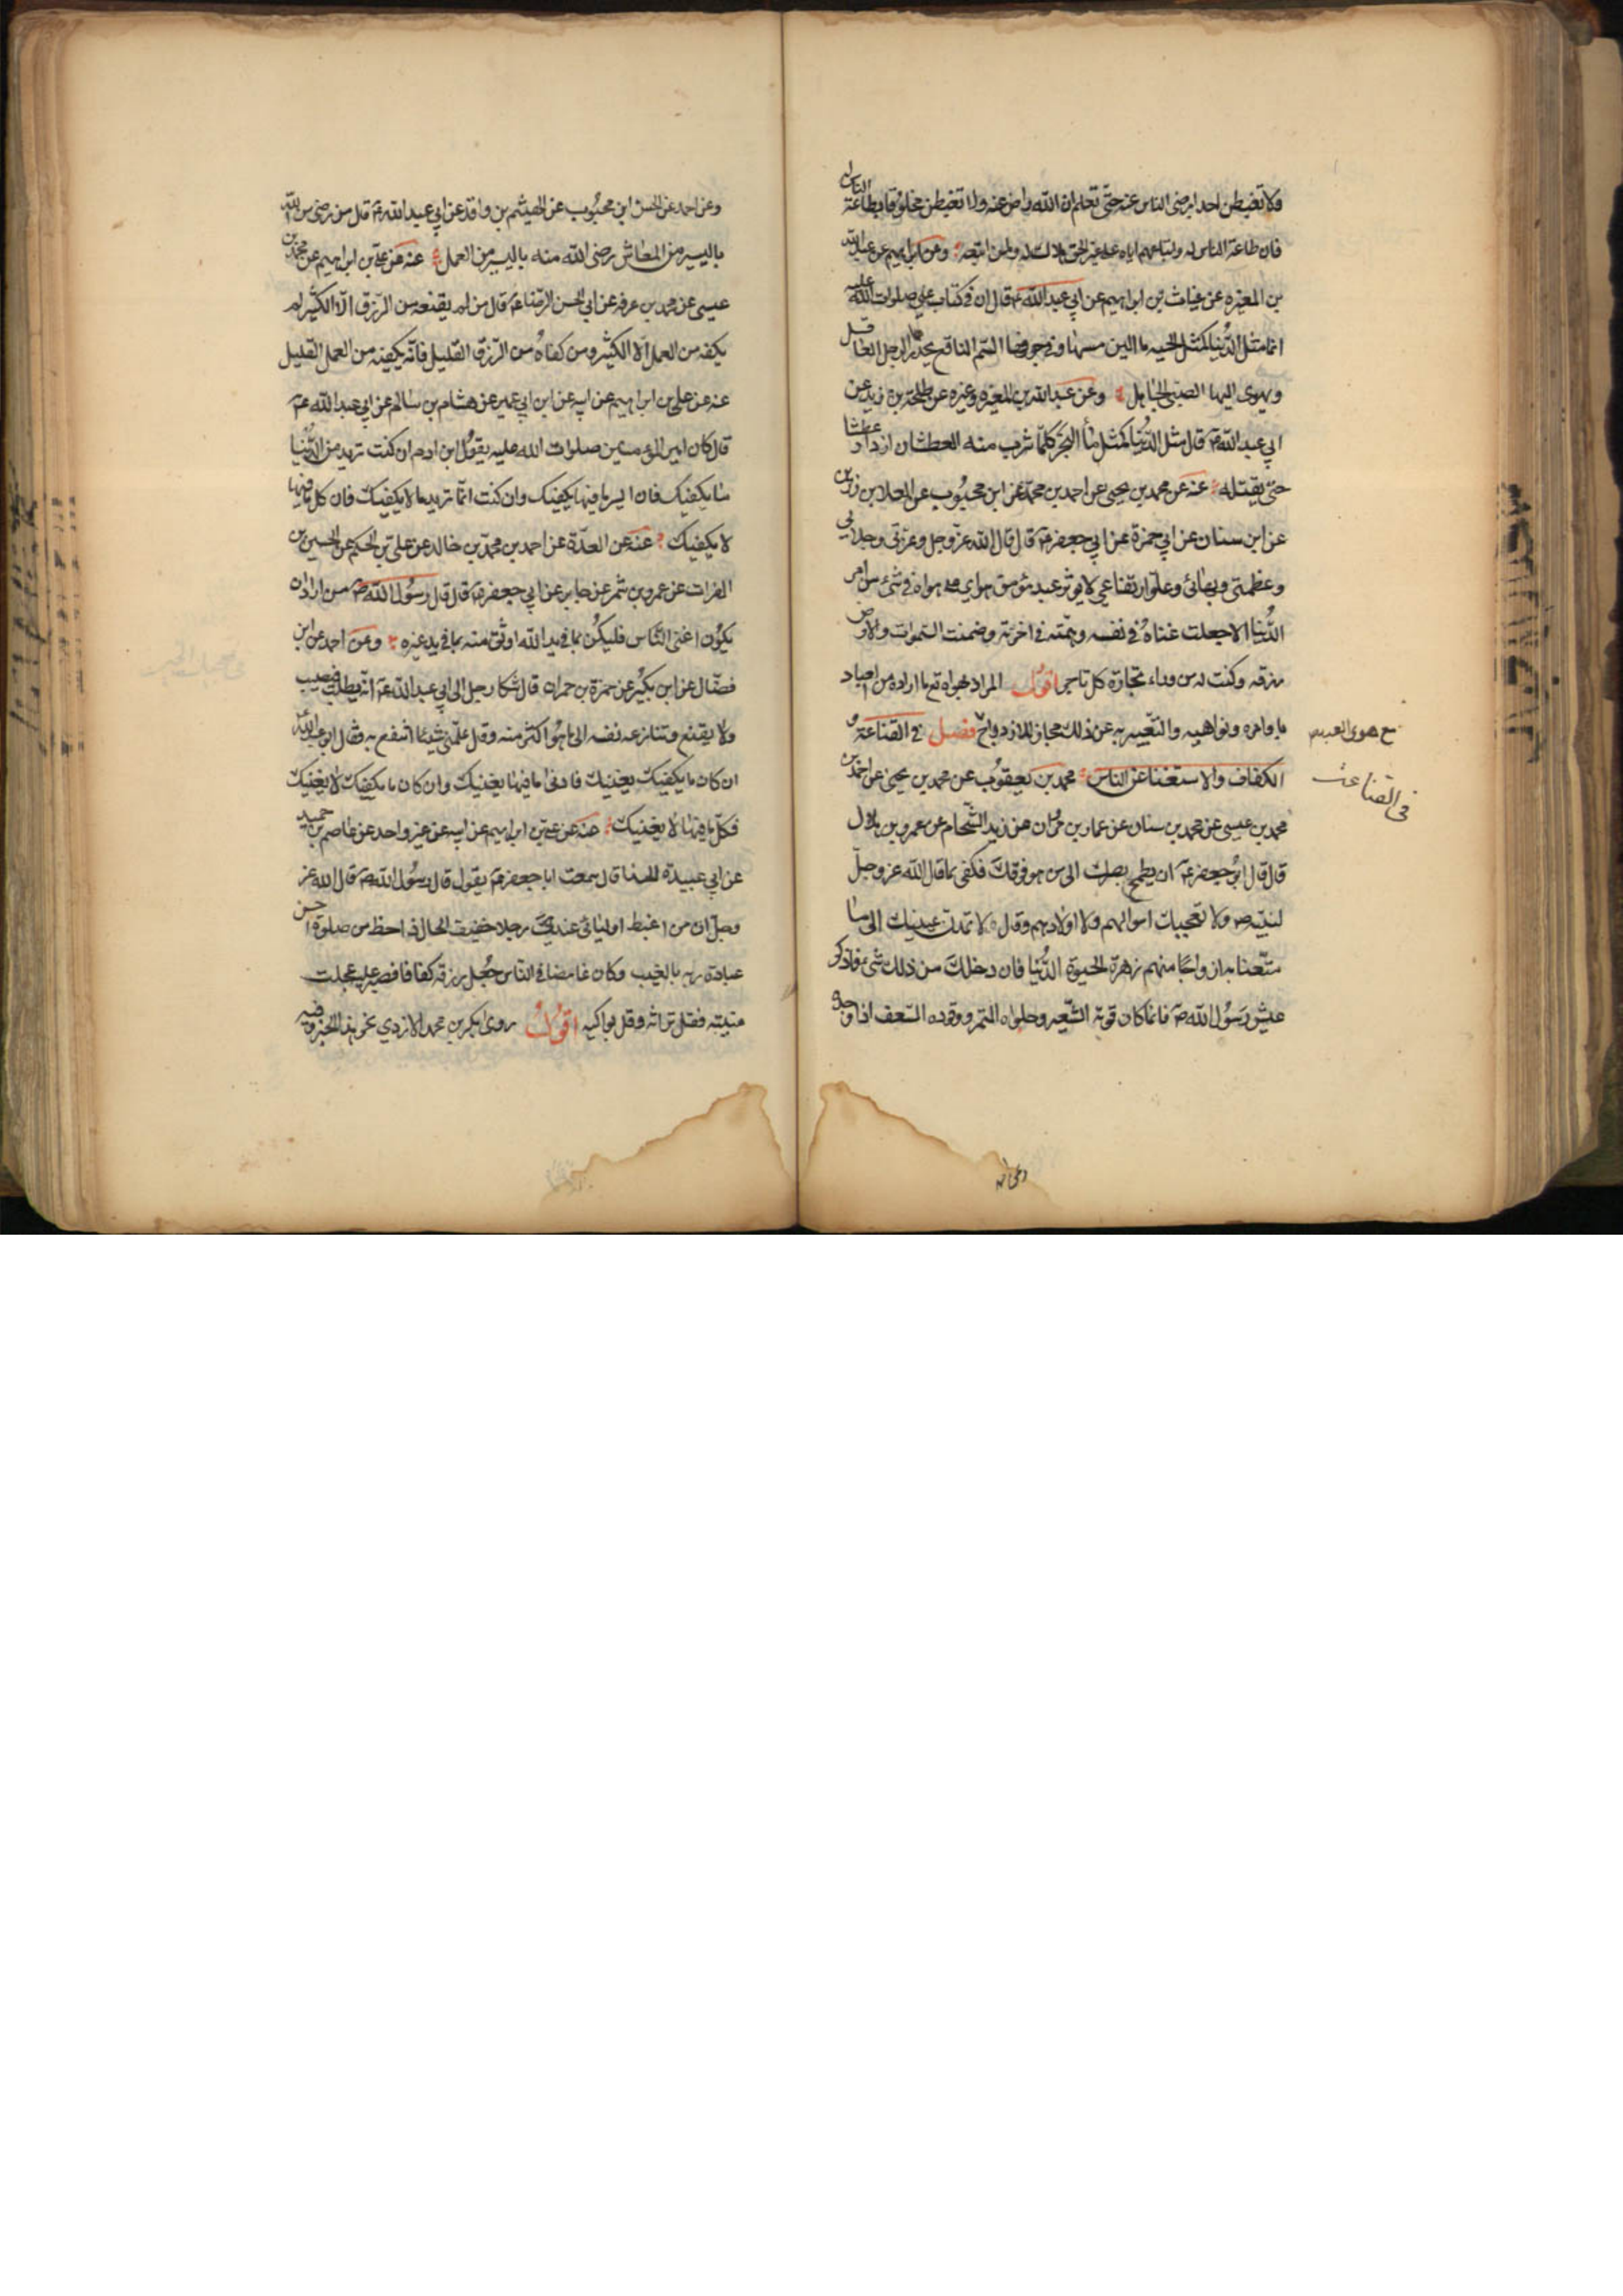 فلا تغبطن احدا برضى الناس عنه حتى تعلم ان الله راض عنه ولا تغبطن مخلوقا بطاعة الناس له
فان طاعة الناس له واتباعهم اياه على غير الحق هلاك له ولمن اتبعه وعن ابراهيم عن عبد الله
بن المغيره عن غياث بن ابراهيم عن ابي عبد الله ع قال ان في كتاب علي صلوات الله عليه
انما مثل الدنيا كمثل الحيه ما الين مسها وفي جوفها السم الناقع يحذرها الرجل العاقل
ويهوى اليها الصبي الجاهل وعن عبد الله بن المغيره وغيره عن طلحة بن زيد عن
ابي عبد الله ع قال مثل الدنيا كمثل ماء البحر كلما شرب منه العطشان ازداد عطشا
حتى يقتله عنه عن محمد بن يحيى عن احمد بن محمد عن ابن محبوب عن العلا بن رزين
عن ابن سنان عن ابي حمزة عن ابي جعفر ع قال قال الله عز وجل وعزتى وجلالي
وعظمتى وبهائى وعلو ارتفاعي لا يوثر عبد مؤمن هواي على هواه في شئ من امر
الدنيا الا جعلت غناه في نفسه وهمته في اخرته وضمنت السموات والارض
رزقه وكنت له من وراء تجارة كل تاجر اقول المراد بهواه تع ما اراده من العباد
باوامره ونواهيه والتعبير به عن ذلك مجاز للازدواج فصل في القناعة و
الكفاف والاستغنا عن الناس محمد بن يعقوب عن محمد بن يحيى عن احمد بن
محمد بن عيسى عن محمد بن سنان عن عمار بن مروان عن زيد الشحام عن عمرو بن هلال
قال قال ابو جعفر ع ان يطمح بصرك الى من هو فوقك فكفى بما قال الله عز وجل
لنبيه ص ولا تعجبك اموالهم ولا اولادهم وقال ولا تمدن عينيك الى ما
متعنا به ازواجا منهم زهرة الحيوة الدنيا فان دخلك من ذلك شئ فاذكر
عيش رسول الله ص فانما كان قوته الشعير وحلواه التمر ووقوده السعف اذا وجده
مع هوى العبد
فى القناعت
وعن احمد عن الحسن ابن محبوب عن الهيثم بن واقد عن ابي عبد الله ع قال من رضى من الله
باليسير من المعاش رضى الله منه باليسير من العمل عنه عن علي بن ابراهيم عن محمد بن
عيسى عن محمد بن عرفه عن ابي الحسن الرضا ع قال من لم يقنعه من الرزق الا الكثير لم
يكفه من العمل الا الكثير ومن كفاه من الرزق القليل فانه يكفيه من العمل القليل
عنه عن علي بن ابراهيم عن ابيه عن ابن ابي عمير عن هشام بن سالم عن ابي عبد الله ع
قال كان امير المؤمنين صلوات الله عليه يقول ابن ادم ان كنت تريد من الدنيا
ما يكفيك فان ايسر ما فيها يكفيك وان كنت انما تريد ما لا يكفيك فان كل ما فيها
لا يكفيك عنه عن العدة عن احمد بن محمد بن خالد عن علي بن الحكم عن الحسين بن
الفرات عن عمرو بن شمر عن جابر عن ابي جعفر ع قال قال رسول الله ص من اراد ان
يكون اغنى الناس فليكن بما في يد الله اوثق منه بما في يد غيره وعن احمد عن ابن
فضال عن ابن بكير عن حمزة بن حمران قال شكا رجل الى ابي عبد الله ع انه يطلب فيصيب
ولا يقنع وتنازعه نفسه الى ما هو اكثر منه وقال علمنى شيئا انتفع به فقال ابو عبد الله
ان كان ما يكفيك يغنيك فادنى ما فيها يغنيك وان كان ما يكفيك لا يغنيك
فكل ما فيها لا يغنيك عنه عن علي بن ابراهيم عن ابيه عن غير واحد عن عاصم بن حميد
عن ابي عبيدة الحذا قال سمعت ابا جعفر ع يقول قال رسول الله ص قال الله عز
وجل ان من اغبط اوليائى عندى رجلا خفيف الحال ذا حظ من صلوة احسن
عبادة ربه بالغيب وكان غامضا في الناس جعل رزقه كفافا فصبر عليه عجلت
منيته فقل تراثه وقل بواكيه اقول روى بكر بن محمد الازدي نحو هذا الخبر وفيه